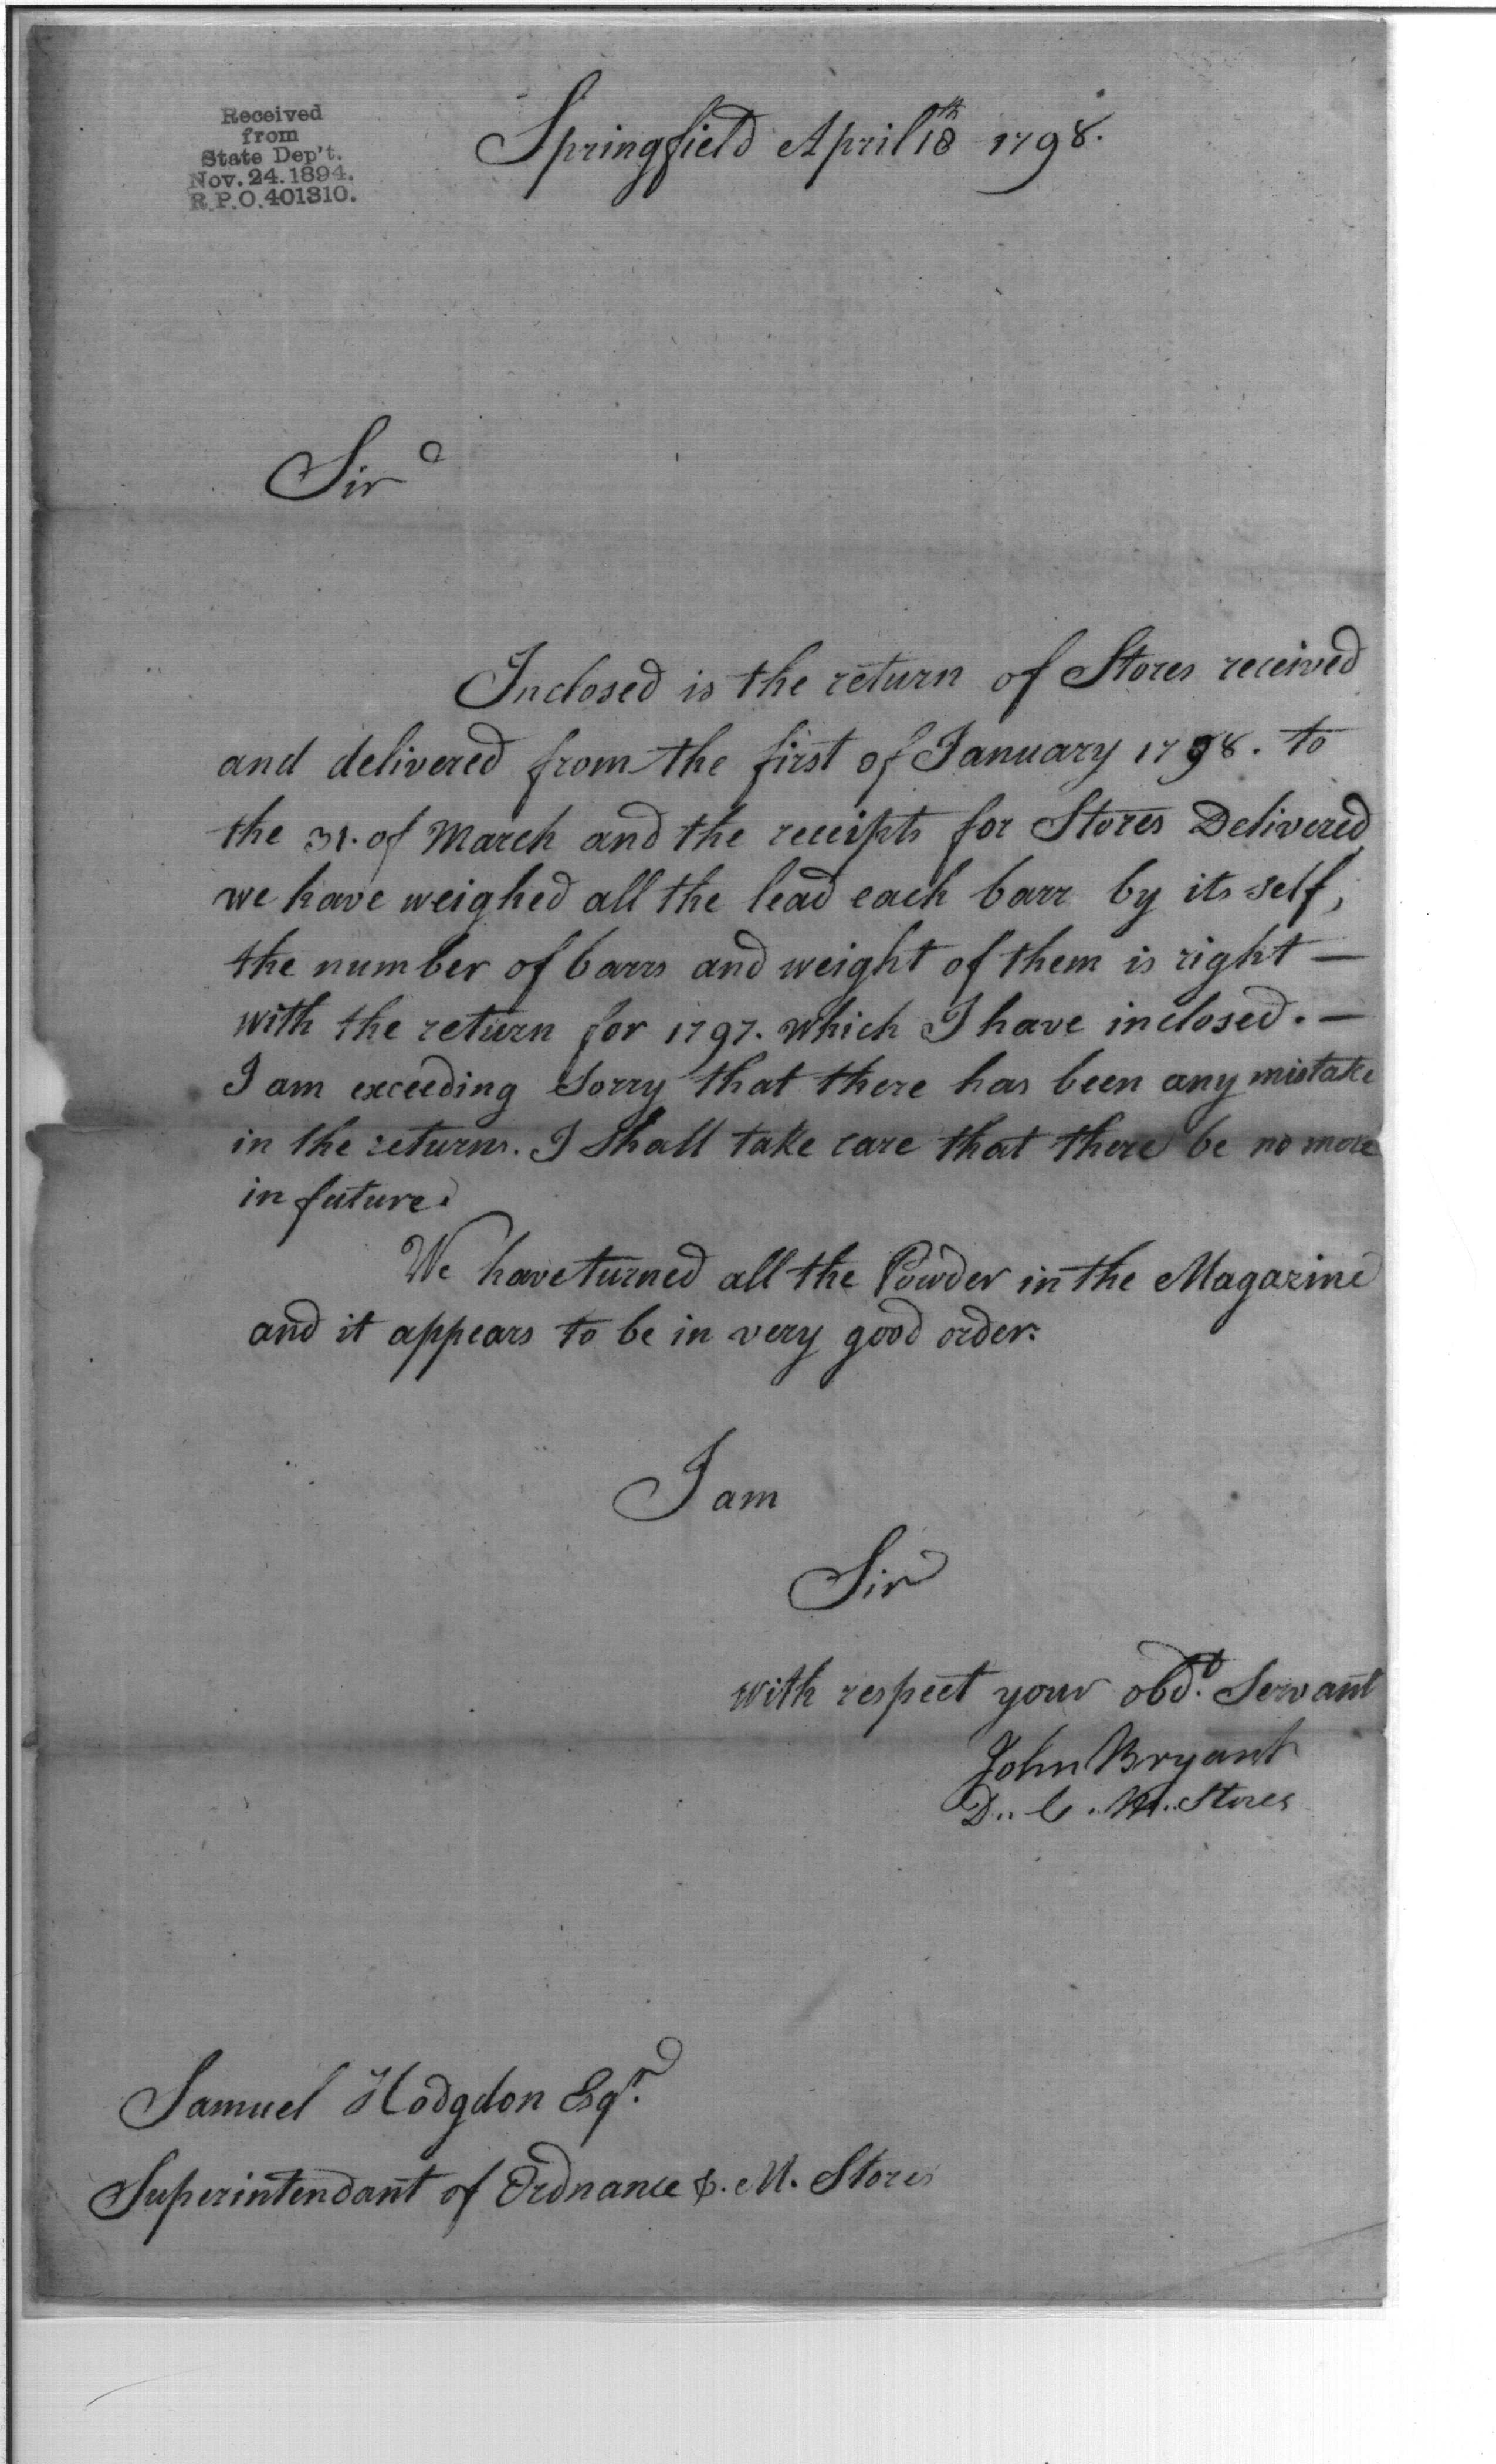 Received
from
State Dep't.
Nov. 24. 1894.
R.P.O. 401310.
Springfield April 18th 1798.
Sir
Inclosed is the return of Stores received
and delivered from the first of January 1798. to
the 31. of March and the receipts for Stores Delivered
we have weighed all the lead each barr by its self,
the number of barrs and weight of them is right —
with the return for 1797. which I have inclosed. —
I am exceeding Sorry that there has been any mistake
in the returns. I Shall take care that there be no more
in future.
We have turned all the Powder in the Magazine
and it appears to be in very good order.
I am
Sir
with respect your obdt. Servant
John Bryant
D.. C. M.. Stores
Samuel Hodgdon Esqr.
Superintendant of Ordnance &. M. Stores